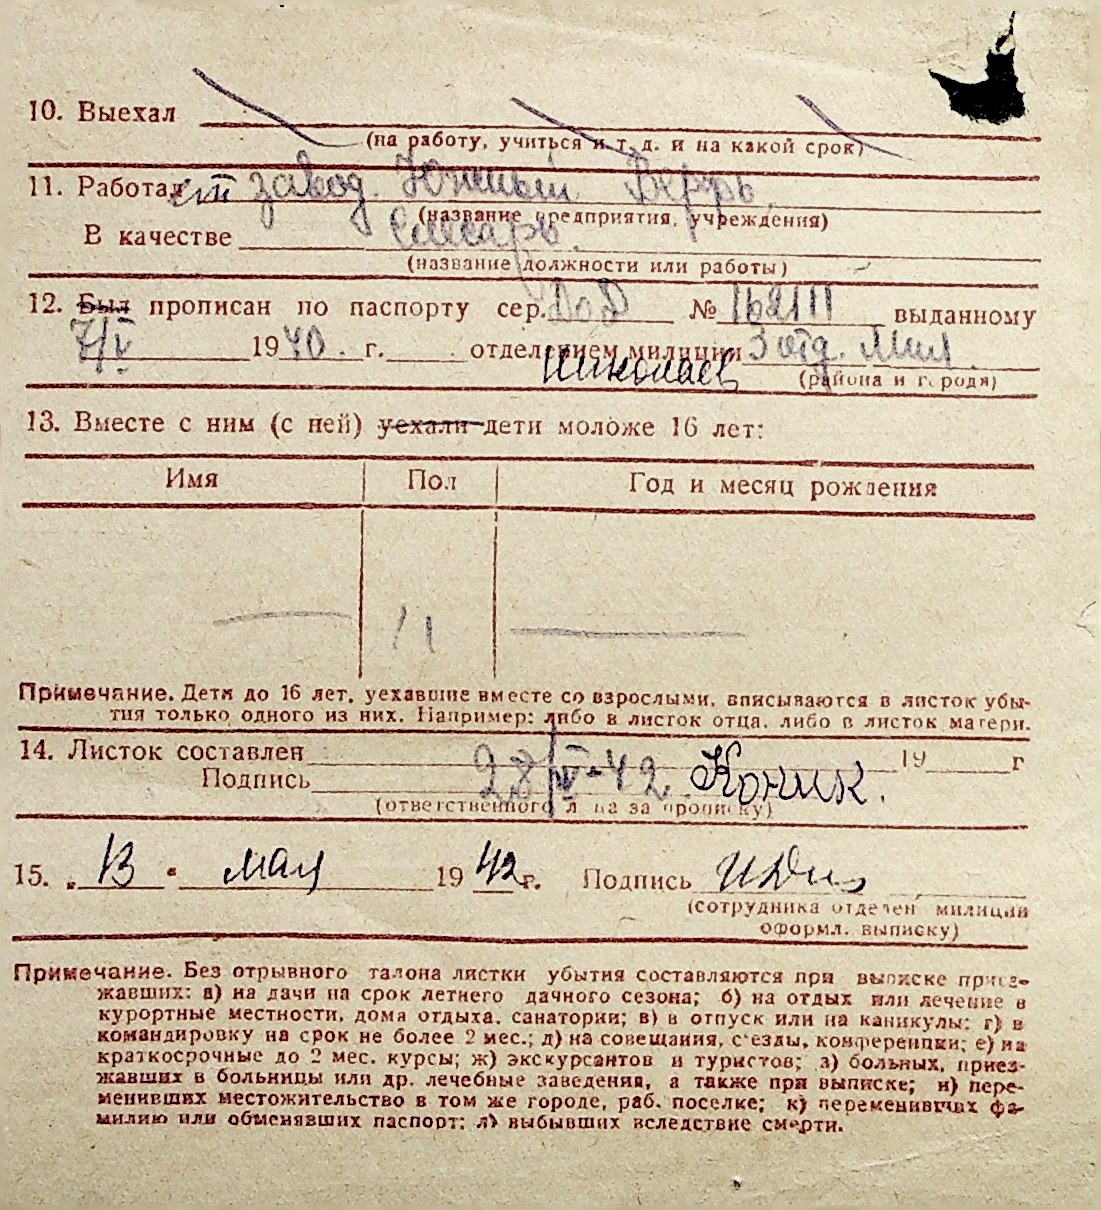 10. Выехал
(на работу, учиться и т. д. и на какой срок)
11. Работает завод Южный Верфь
(название предприятия, учреждения)
В качестве слесарь.
(название должности или работы)
12. Был прописан по паспорту сер. № 162111 выданному
7/V 1940. г. отделением милиции 3 отд. Мил.
Николаев (района и города)
13. Вместе с ним (с ней) уехали дети моложе 16 лет:
Имя Пол Год и месяц рождения
Примечание. Дети до 16 лет, уехавшие вместе со взрослыми, вписываются в листок убы-
тия только одного из них. Например: либо в листок отца, либо в листок матери.
14. Листок составлен 28/IV-42 19 г
Подпись Коник.
(ответственного лица за прописку)
15. „13" мая 1942г. Подпись
(сотрудника отделен милиции
оформл. выписку)
Примечание. Без отрывного талона листки убытия составляются при выписке приез-
жавших: а) на дачи на срок летнего дачного сезона; б) на отдых или лечение в
курортные местности, дома отдыха, санатории; в) в отпуск или на каникулы; г) в
командировку на срок не более 2 мес.; д) на совещания, с'езды, конференции; е) на
краткосрочные до 2 мес. курсы; ж) экскурсантов и туристов; з) больных, приез-
жавших в больницы или др. лечебные заведения, а также при выписке; и) пере-
менивших местожительство в том же городе, раб. поселке; к) переменивших фа-
милию или обменявших паспорт; л) выбывших вследствие смерти.